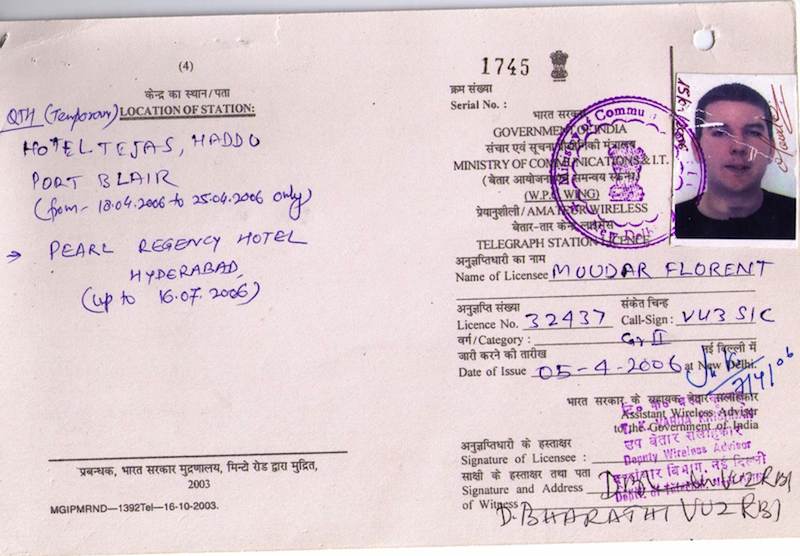 (4)
केन्द्र का स्थान/पता
QTH (Temporary) LOCATION OF STATION:
HOTEL TEJAS, HADDO
PORT BLAIR
(from - 18.04.2006 to 25.04.2006 only)
→ PEARL REGENCY HOTEL
HYDERABAD,
(up to 16.07.2006)
प्रबन्धक, भारत सरकार मुद्रणालय, मिन्टो रोड द्वारा मुद्रित,
2003
MGIPMRND—1392Tel—16-10-2003.
1745
क्रम संख्या
Serial No. :
भारत सरकार
GOVERNMENT OF INDIA
संचार एवं सूचना प्रौद्योगिकी मंत्रालय
MINISTRY OF COMMUNICATIONS & I.T.
(बेतार आयोजना एवं समन्वय स्कन्ध)
(W.P.C. WING)
प्रेयानुशीली/AMATEUR WIRELESS
बेतार-तार केन्द्र लाइसेंस
TELEGRAPH STATION LICENCE
Ministry of Commu
अनुज्ञप्तिधारी का नाम
Name of Licensee MOUDAR FLORENT
अनुज्ञप्ति संख्या संकेत चिन्ह
Licence No. 32437 Call-Sign : VU3 SIC
वर्ग/Category : Gr II
जारी करने की तारीख नई दिल्ली में
Date of Issue 05-4-2006 at New Delhi.
भारत सरकार के सहायक बेतार सलाहकार
Assistant Wireless Advisor
to the Government of India
उप बेतार सलाहकार
Deputy Wireless Advisor
अनुज्ञप्तिधारी के हस्ताक्षर
Signature of Licensee :
साक्षी के हस्ताक्षर तथा पता
Signature and Address
of Witness
D. BHARATHI VU2 RBI